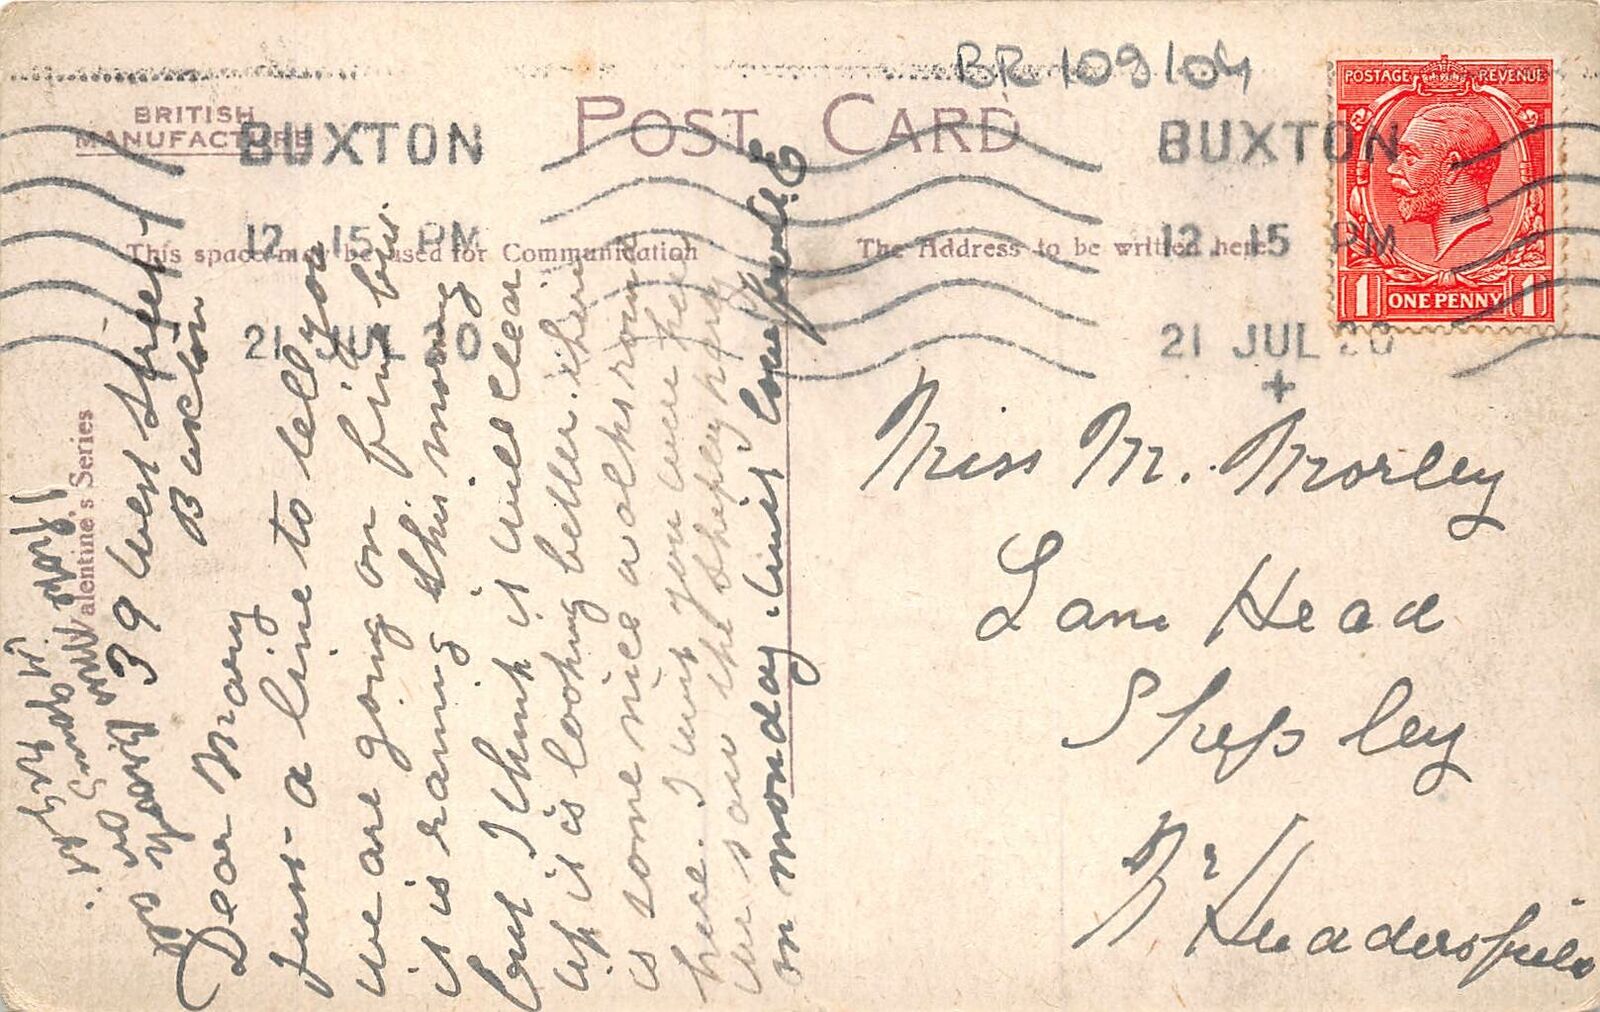 BR 109/04
BRITISH
MANUFACTURE
POST CARD
BUXTON
12.15 PM
21 JUL 20
BUXTON
12.15 PM
21 JUL 20
POSTAGE REVENUE
1 ONE PENNY 1
This space may be used for Communication
The Address to be written here
Valentine's Series
39 West Street
Buxton
Dear Mary
Just a line to tell you
we are going on fine but
it is raining this morning
but I think it will clear
up it is looking better. there
is some nice walks round
here. I wish you were here
we saw the Shepley party
on monday. with love from E
Miss M. Morley
Lane Head
Shepley
Nr Huddersfield